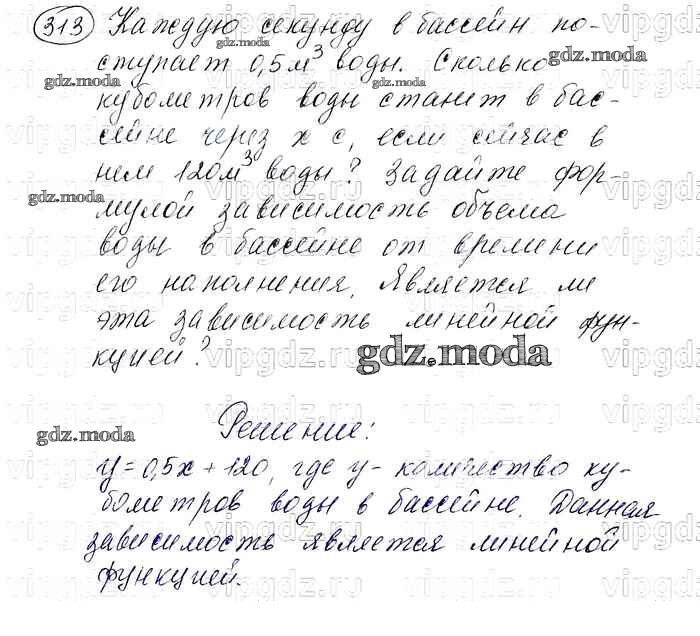 313 Каждую секунду в бассейн по-
ступает 0,5м³ воды. Сколько
кубометров воды станет в бас-
сейне через x с, если сейчас в
нем 120м³ воды? Задайте фор-
мулой зависимость объема
воды в бассейне от времени
его наполнения. Является ли
эта зависимость линейной фун-
кцией?
gdz.moda
Решение:
y=0,5x+120, где y- количество ку-
бометров воды в бассейне. Данная
зависимость является линейной
функцией.